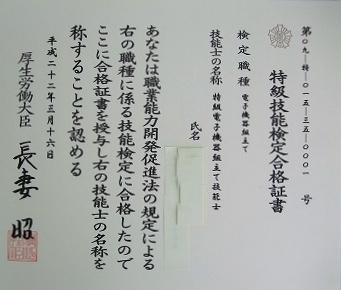 第〇九-特-〇一五-三五-〇〇〇一号
特級技能検定合格証書
検定職種 電子機器組立て
技能士の名称 特級電子機器組立て技能士
氏名
あなたは職業能力開発促進法の規定による
右の職種に係る技能検定に合格したので
ここに合格証書を授与し右の技能士の名称を
称することを認める
平成二十二年三月十六日
厚生労働大臣 長妻 昭